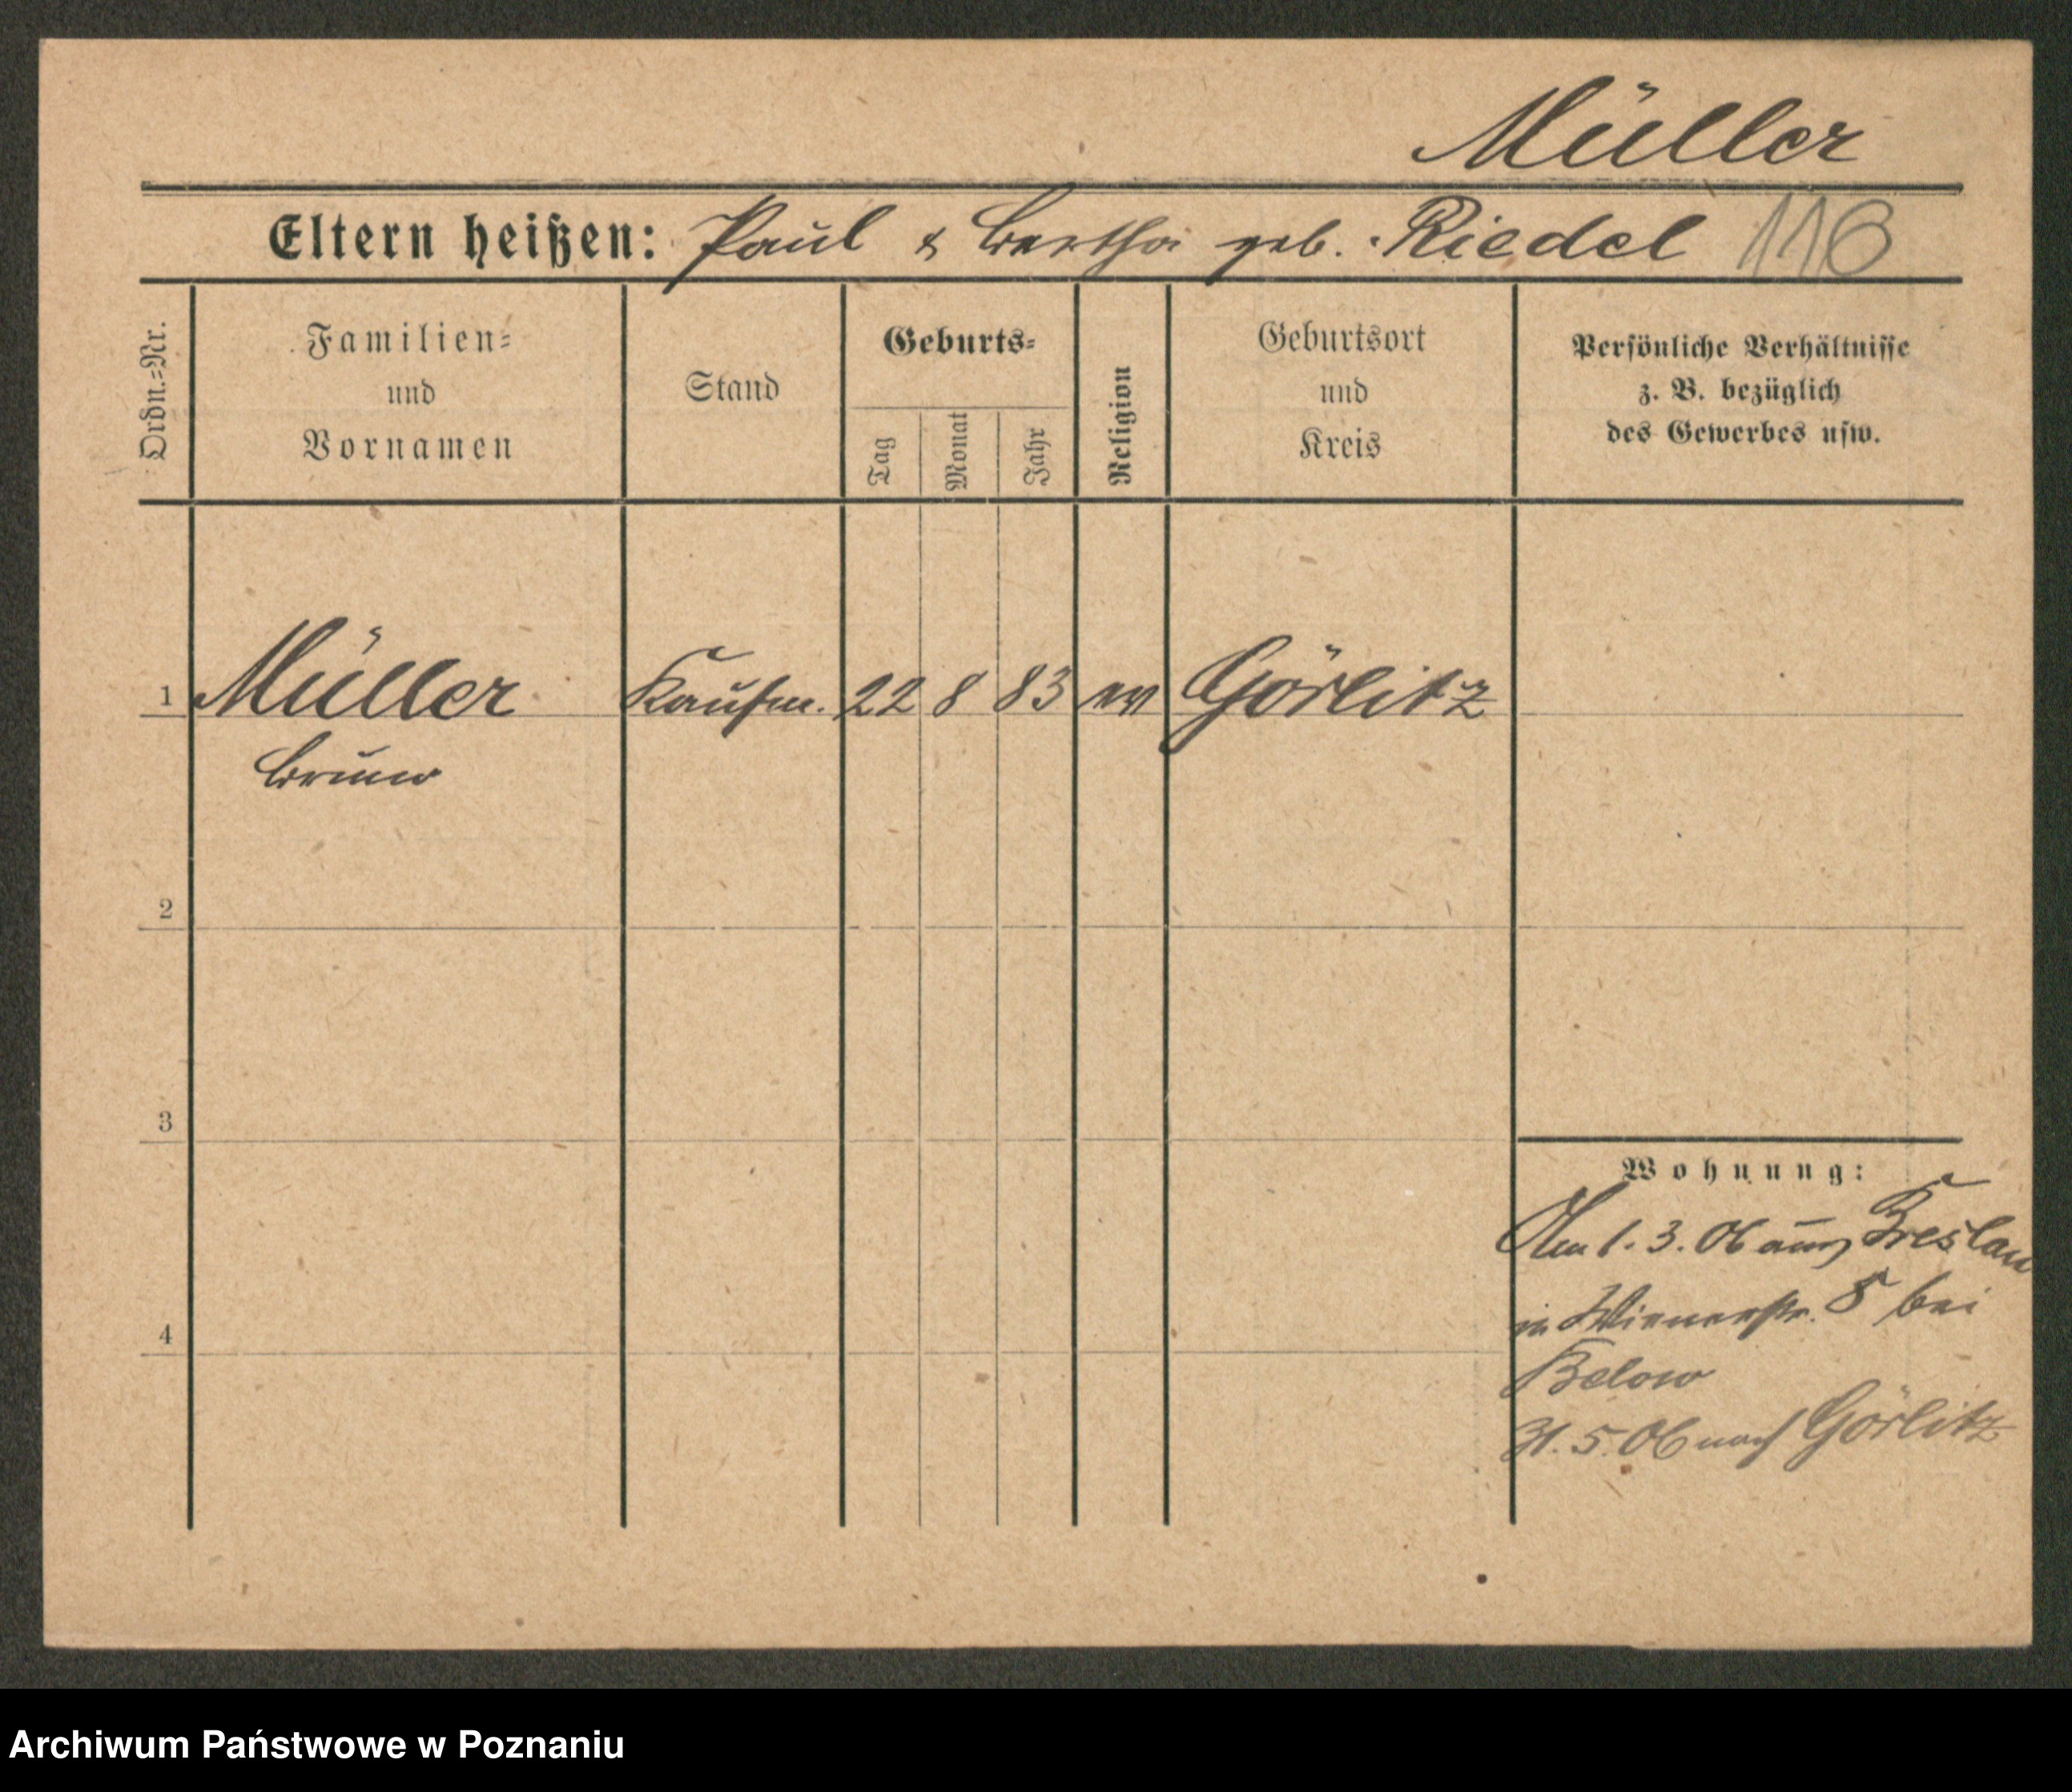 Müller
Eltern heißen: Paul & Bertha geb. Riedel 116
Ordn.=Nr.
Familien=
und
Vornamen
Stand
Geburts=
Tag
Monat
Jahr
Religion
Geburtsort
und
Kreis
Persönliche Verhältnisse
z. B. bezüglich
des Gewerbes usw.
1 Müller Kaufm. 22 8 83 ev Görlitz
Bruno
2
3
4
Wohnung:
Am 1. 3. 06 aus Breslau
in Wienerstr. 8 bei
Below
31. 5. 06 nach Görlitz
Archiwum Państwowe w Poznaniu